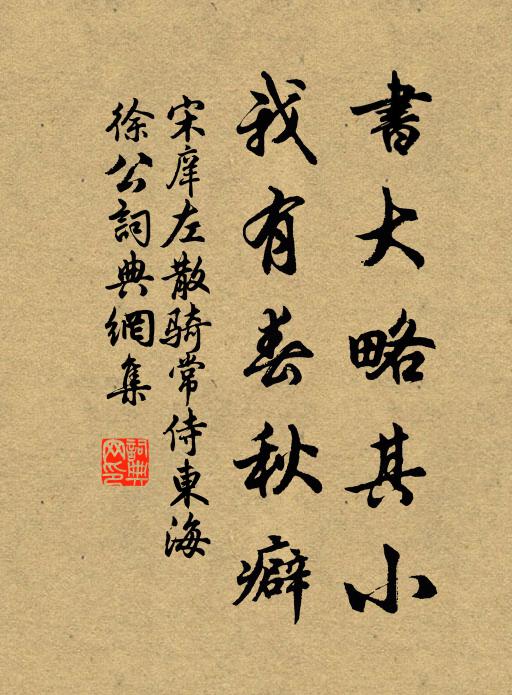 書大略其小
我有春秋癖
宋庠左散騎常侍東海
徐公詞典網集
詞典
网印